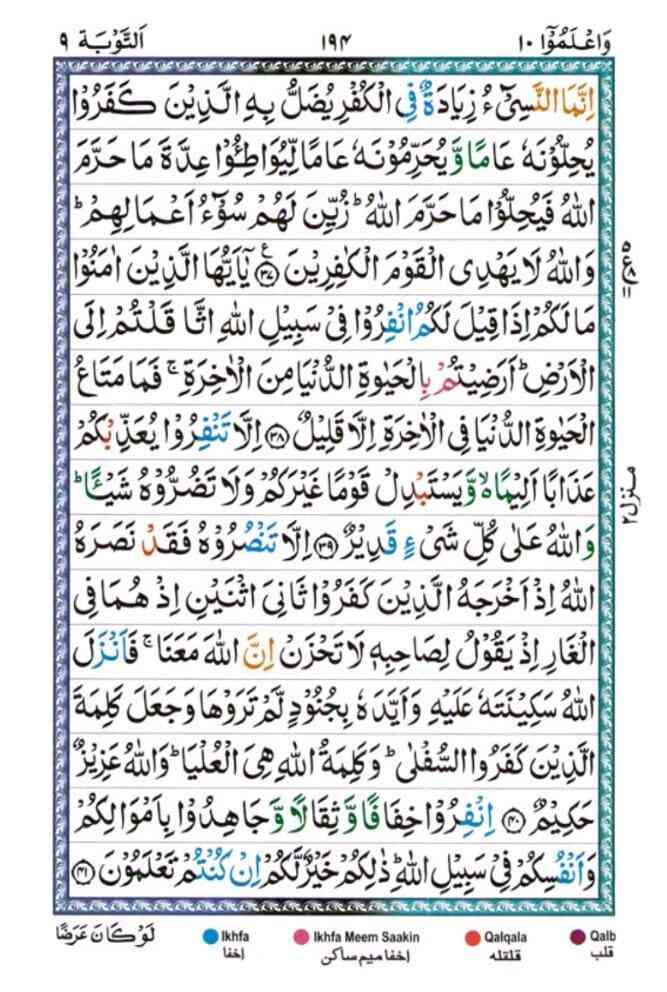 وَاعْلَمُوْٓا ١٠ ١٩٤ اَلتَّوْبَة ٩
اِنَّمَا النَّسِیْٓءُ زِیَادَةٌ فِی الْكُفْرِ یُضَلُّ بِهِ الَّذِیْنَ كَفَرُوْا
یُحِلُّوْنَهٗ عَامًا وَّیُحَرِّمُوْنَهٗ عَامًا لِّیُوَاطِـُٔوْا عِدَّةَ مَا حَرَّمَ
اللّٰهُ فَیُحِلُّوْا مَا حَرَّمَ اللّٰهُ ؕ زُیِّنَ لَهُمْ سُوْٓءُ اَعْمَالِهِمْ ؕ
وَاللّٰهُ لَا یَهْدِی الْقَوْمَ الْكٰفِرِیْنَ ۟ ﴿٣٧﴾ یٰۤاَیُّهَا الَّذِیْنَ اٰمَنُوْا
مَا لَكُمْ اِذَا قِیْلَ لَكُمُ انْفِرُوْا فِیْ سَبِیْلِ اللّٰهِ اثَّا قَلْتُمْ اِلَی
الْاَرْضِ ؕ اَرَضِیْتُمْ بِالْحَیٰوةِ الدُّنْیَا مِنَ الْاٰخِرَةِ ۚ فَمَا مَتَاعُ
الْحَیٰوةِ الدُّنْیَا فِی الْاٰخِرَةِ اِلَّا قَلِیْلٌ ﴿٣٨﴾ اِلَّا تَنْفِرُوْا یُعَذِّبْكُمْ
عَذَابًا اَلِیْمًا ۙ وَّیَسْتَبْدِلْ قَوْمًا غَیْرَكُمْ وَلَا تَضُرُّوْهُ شَیْـًٔا ؕ
وَاللّٰهُ عَلٰی كُلِّ شَیْءٍ قَدِیْرٌ ﴿٣٩﴾ اِلَّا تَنْصُرُوْهُ فَقَدْ نَصَرَهُ
اللّٰهُ اِذْ اَخْرَجَهُ الَّذِیْنَ كَفَرُوْا ثَانِیَ اثْنَیْنِ اِذْ هُمَا فِی
الْغَارِ اِذْ یَقُوْلُ لِصَاحِبِهٖ لَا تَحْزَنْ اِنَّ اللّٰهَ مَعَنَا ۚ فَاَنْزَلَ
اللّٰهُ سَكِیْنَتَهٗ عَلَیْهِ وَاَیَّدَهٗ بِجُنُوْدٍ لَّمْ تَرَوْهَا وَجَعَلَ كَلِمَةَ
الَّذِیْنَ كَفَرُوا السُّفْلٰی ؕ وَكَلِمَةُ اللّٰهِ هِیَ الْعُلْیَا ؕ وَاللّٰهُ عَزِیْزٌ
حَكِیْمٌ ﴿٤٠﴾ اِنْفِرُوْا خِفَافًا وَّثِقَالًا وَّجَاهِدُوْا بِاَمْوَالِكُمْ
وَاَنْفُسِكُمْ فِیْ سَبِیْلِ اللّٰهِ ؕ ذٰلِكُمْ خَیْرٌ لَّكُمْ اِنْ كُنْتُمْ تَعْلَمُوْنَ ﴿٤١﴾
منزل ٢
لَوْ كَانَ عَرَضًا
Ikhfa Ikhfa Meem Saakin Qalqala Qalb
اخفا اخفا میم ساکن قلقله قلب